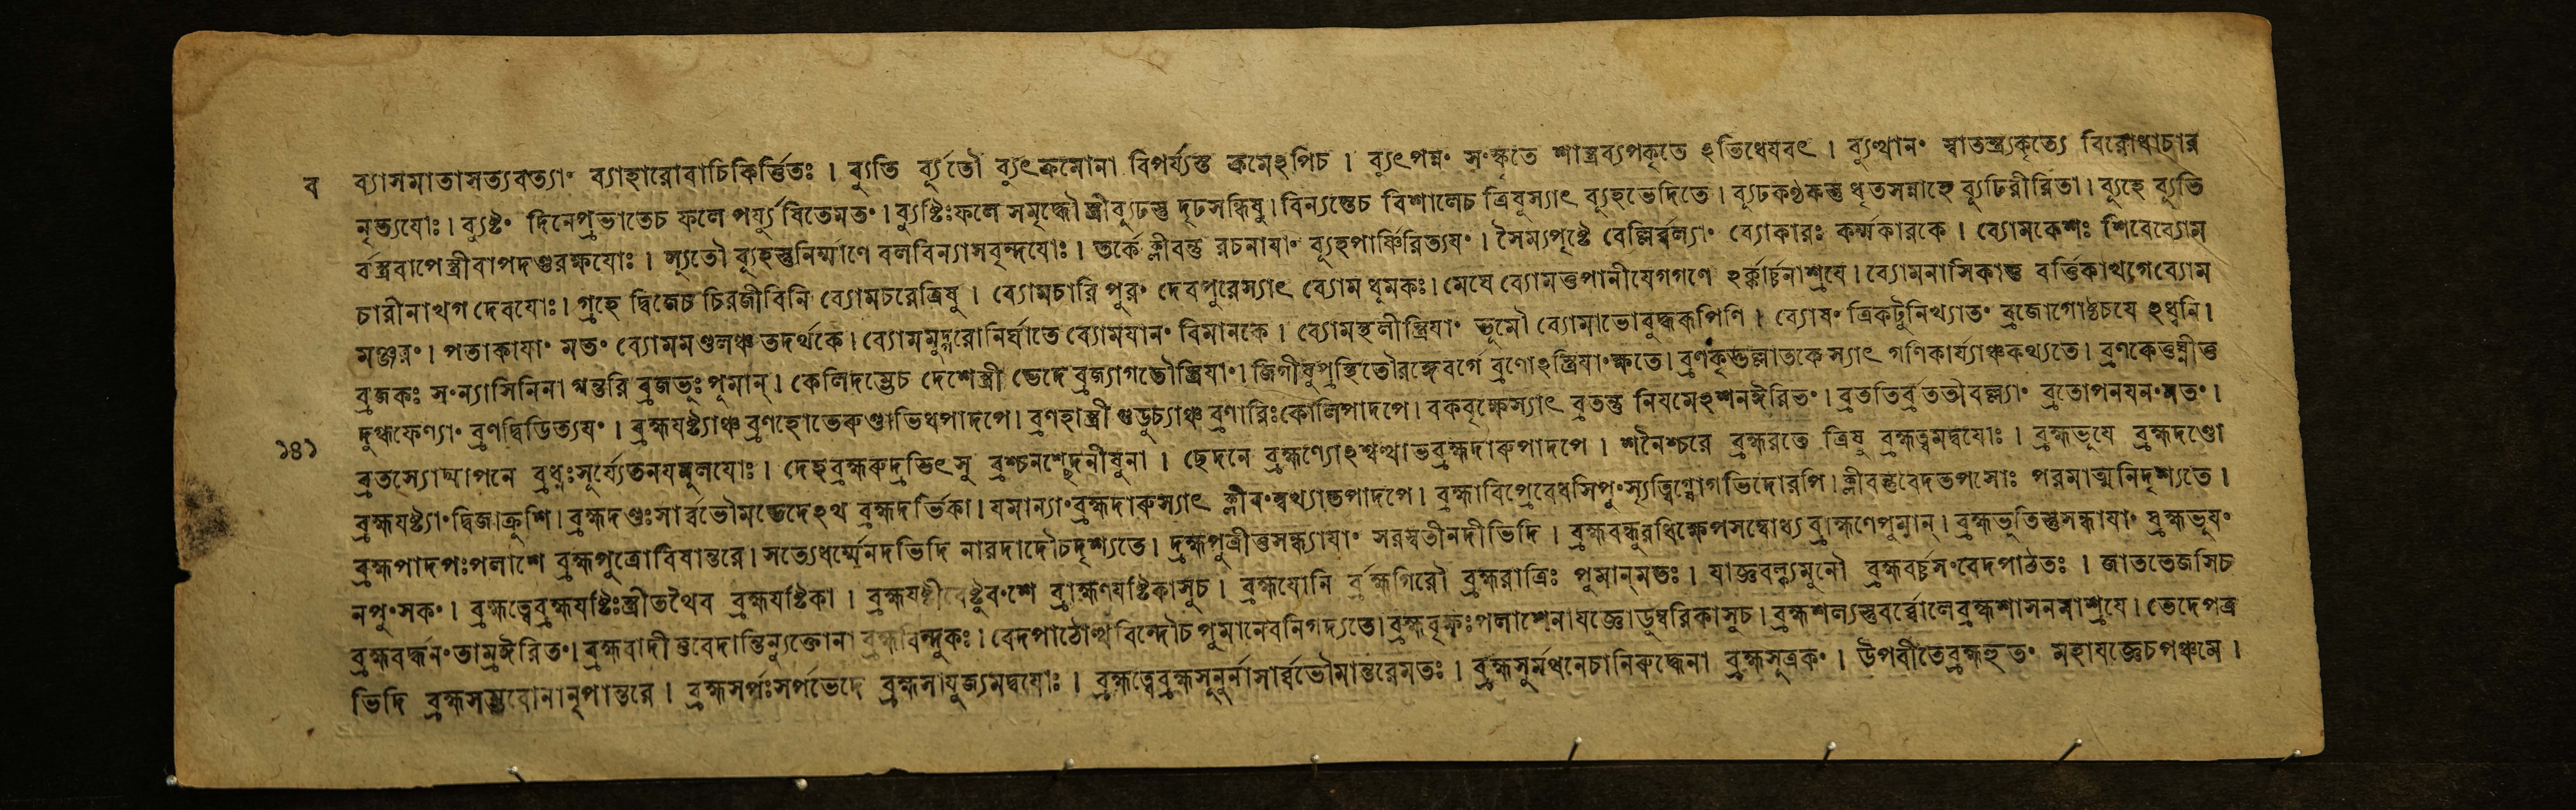 ব ব্যাসমাতাসত্যবত্যাং ব্যাহারোবাচিকির্ত্তিতঃ । ব্যুতি র্ব্যুতৌ ব্যুৎক্রমোনা বিপর্য্যস্ত ক্রমেঽপিচ । ব্যুৎপন্নং সংস্কৃতে শাস্ত্রব্যপকৃতে ঽভিধেযবৎ । ব্যুত্থানং স্বাতন্ত্র্যকৃত্যে বিরোধাচার
নৃত্যযোঃ । ব্যুষ্টং দিনেপ্রভাতেচ ফলে পর্য্যুষিতেমতং । ব্যুষ্টিঃফলে সমৃদ্ধৌস্ত্রীব্যুঢস্তু দৃঢসন্ধিষু । বিন্যস্তেচ বিশালেচ ত্রিষুস্যাৎ ব্যূহভেদিতে । ব্যুঢকণ্ঠকস্তু ধৃতসন্নাহে ব্যুঢিরীরিতা । ব্যুহে ব্যুতি
র্বস্ত্রবাপেস্ত্রীবাপদণ্ডরক্ষযোঃ । স্যুতৌ ব্যুহস্তুনির্ম্মাণে বলবিন্যাসবৃন্দযোঃ । তর্কে ক্লীবন্তু রচনাযাং ব্যূহপার্ষ্ণিরিত্যযং । সৈন্যপৃষ্টে বেল্লির্ব্বল্যাং ব্যোকারঃ কর্ম্মকারকে । ব্যোমকেশঃ শিবেব্যোম
চারীনাথগ দেবযোঃ । গ্রহে দ্বিজেচ চিরজীবিনি ব্যোমচরেত্রিষু । ব্যোমচারি পুরং দেবপুরেস্যাৎ ব্যোম ধূমকঃ । মেঘে ব্যোমতপানীযেগগণে ঽর্ক্কার্চ্চনাশ্রযে । ব্যোমনাসিকাতু বর্ত্তিকাখগেব্যোম
মঞ্জরং । পতাকাযাং মতং ব্যোমমণ্ডলঞ্চ তদর্থকে । ব্যোমমুদ্গরোনির্ঘাতে ব্যোমযানং বিমানকে । ব্যোমস্থলীস্ত্রিযাং ভূমৌ ব্যোমাভোবুদ্ধরূপিণি । ব্যোষং ত্রিকটুনিখ্যাতং ব্রজোগোষ্ঠচযে ঽধ্বনি ।
ব্রজকঃ সংন্যাসিনিনা শ্বন্তরি ব্রজভূঃ পুমান্ । কেলিদম্ভেচ দেশেস্ত্রী ভেদে ব্রজ্যাগতৌস্ত্রিযাং । জিগীষুপ্রস্থিতৌরঙ্গেবর্গে ব্রণোঽস্ত্রিযাংক্ষতে । ব্রণকৃত্তল্লাতকেস্যাৎ গণিকার্য্যাঞ্চকথ্যতে । ব্রণকেতুঘ্নীতু
দুগ্ধফেণ্যাং ব্রণদ্বিডিত্যযং । ব্রহ্মযষ্ট্যাঞ্চ ব্রণহোতেরুণ্ডাভিধপাদপে । ব্রণহাস্ত্রী গুডুচ্যাঞ্চ ব্রণারিঃকোলিপাদপে । বকবৃক্ষেস্যাৎ ব্রতন্তু নিযমেঽশনঈরিতং । ব্রততির্ব্রততীবল্ল্যাং ব্রতোপনযনংমতং ।
১৪১
ব্রতস্যোদ্যাপনে ব্রধ্নঃসূর্য্যেতনযমূলযোঃ । দেহব্রহ্মরুদ্রভিৎসু ব্রশ্চনশ্ছেদনীষুনা । ছেদনে ব্রহ্মণ্যোঽশ্বত্থাভব্রহ্মদারুপাদপে । শনৈশ্চরে ব্রহ্মরতে ত্রিষু ব্রহ্মত্বমদ্বযোঃ । ব্রহ্মভূযে ব্রহ্মদণ্ডো
ব্রহ্মযষ্ট্যাংদ্বিজাক্রুশি । ব্রহ্মদণ্ডঃসার্ব্বভৌমভেদেঽথ ব্রহ্মদর্ভিকা । যমান্যাংব্রহ্মদারুস্যাৎ ক্লীবংশ্বথ্যাতপাদপে । ব্রহ্মাবিপ্রেবেধসিপুংস্যৃত্বিগ্যোগভিদোরপি । ক্লীবন্তুবেদতপসোঃ পরমাত্মনিদৃশ্যতে ।
ব্রহ্মপাদপঃপলাশে ব্রহ্মপুত্রোবিষান্তরে । সত্যেধর্ম্মেনদভিদি নারদাদৌচদৃশ্যতে । ব্রহ্মপুত্রীতুসন্ধ্যাযাং সরস্বতীনদীভিদি । ব্রহ্মবন্ধুরধিক্ষেপসম্বোধ্য ব্রাহ্মণেপুমান্ । ব্রহ্মভূতিস্তুসন্ধ্যাযাং ব্রহ্মভূযং
নপুংসকং । ব্রহ্মত্বেব্রহ্মযষ্টিঃস্ত্রীতথৈব ব্রহ্মযষ্টিকা । ব্রাহ্মণযষ্টিকাসুচ । ব্রহ্মযোনি র্ব্রহ্মগিরৌ ব্রহ্মরাত্রিঃ পুমান্মতঃ । যাজ্ঞবল্ক্যমুনৌ ব্রহ্মবর্চ্চসংবেদপাঠতঃ । জাততেজসিচ
ব্রহ্মবর্দ্ধনংতাম্রঈরিতং । ব্রহ্মবাদী তুবেদান্তিন্যুক্তোনা ব্রহ্মবিন্দুকঃ । বেদপাঠোত্থবিন্দৌচপুমানেবনিগদ্যতে । ব্রহ্মবৃক্ষঃপলাশেনাযজ্ঞোডুম্বরিকাসুচ । ব্রহ্মশল্যস্তুবর্ব্বোলেব্রহ্মশাসনমাশ্রযে । ভেদেপত্র
ভিদি ব্রহ্মসম্ভবোনানৃপান্তরে । ব্রহ্মসর্পঃসর্পভেদে ব্রহ্মসাযুজ্যমদ্বযোঃ । ব্রহ্মত্বেব্রহ্মসূনুর্নাসার্ব্বভৌমান্তরেমতঃ । ব্রহ্মসূর্মথনেচানিরুদ্ধেনা ব্রহ্মসূত্রকং । উপবীতেব্রহ্মহুতং মহাযজ্ঞেচপঞ্চমে ।